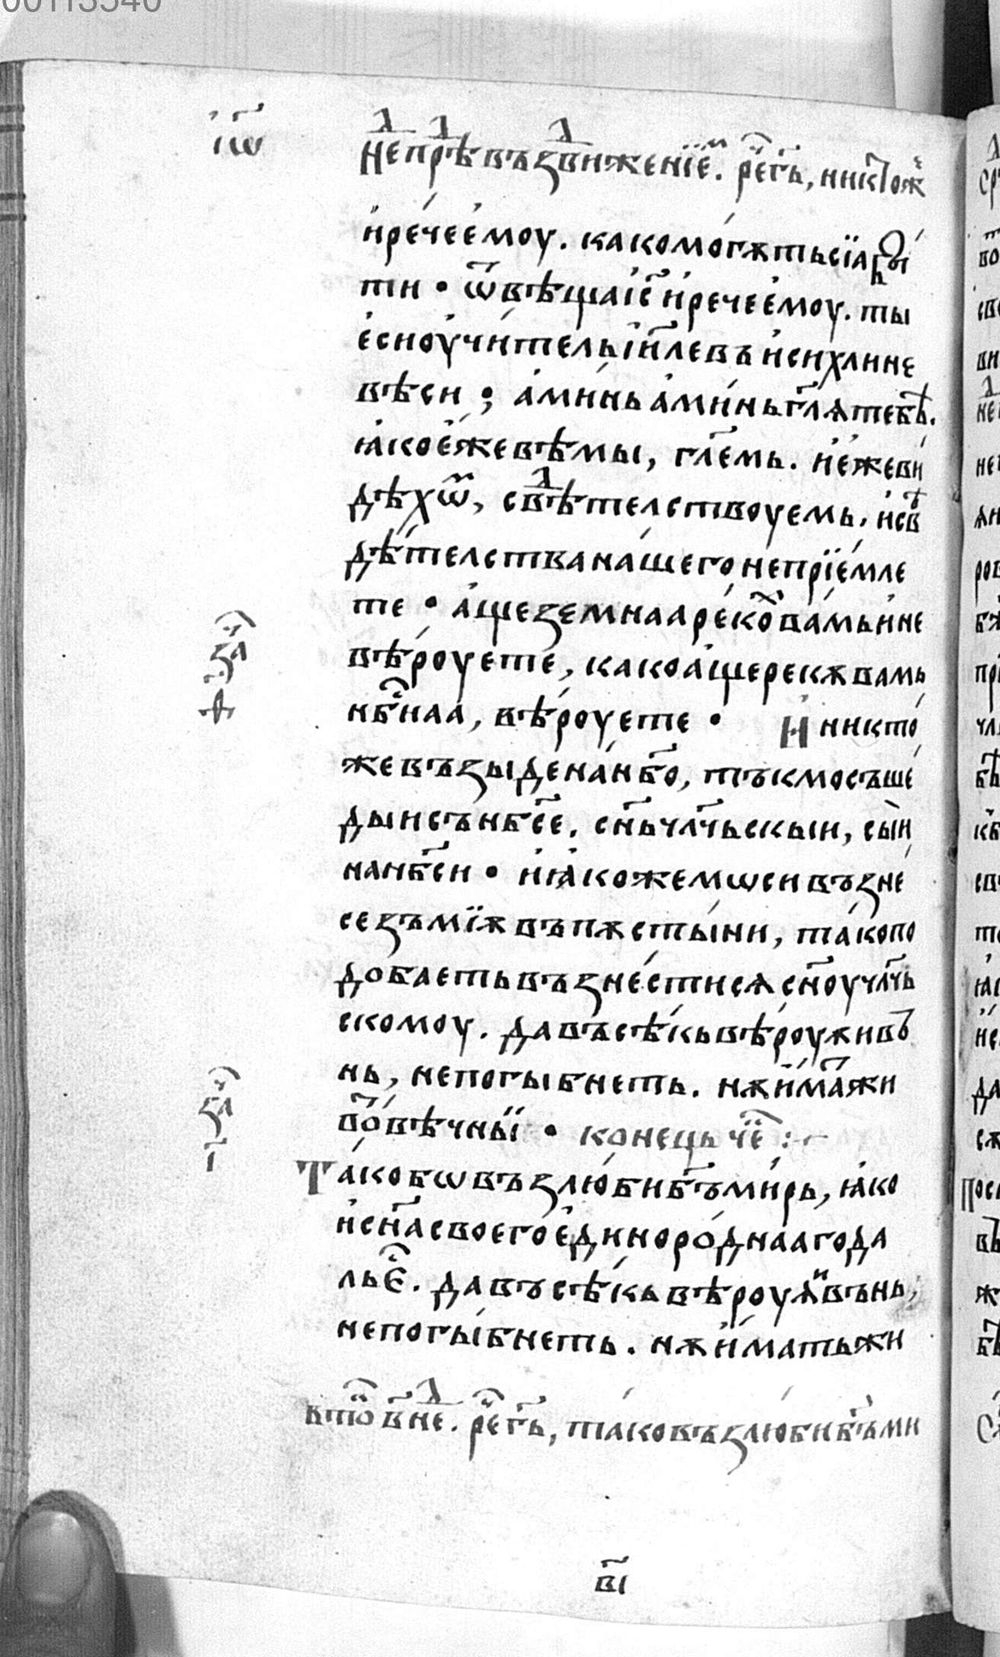 00113540
і҆ѡ҃
Неⷣ преⷣ въздвиженїеⷨ. реⷱ҇ гь҃, никтоⷤ
и҆ рече е҆моу. како могѫть сїа бы
ти • ѿвѣща і҆с҃ и҆ рече е҆моу. ты
е҆си оу҆читель і҆и҃левъ и҆ сихли не
вѣси ; а҆минь а҆минь гл҃ѧ тебѣ.
ꙗ҆ко е҆же вѣмы, гл҃емь. и҆ е҆же ви
дѣхѡⷨ, свⷣѣтелствоуемь. и҆ свѣ
дѣтелства нашего не прїемле
те • а҆ще земнаа рекоⷯ вамь и҆ не
вѣроуете, како а҆ще рекѫ вамь
нбⷭ҇наа, вѣроуете • И никто
же възыде на нб҃о, тъкмо съше
дыи съ нб҃се. сн҃ь чл҃чьскыи, сыи
на нб҃си • и҆ ꙗ҆коже мѡси възне
се змїѫ въ пѫстыни, тако по
добаеть възнестисѧ сн҃оу чл҃чь
скомоу. да въсѣкь вѣроуѫи во
нь, не погыбнеть. нѫ и҆маⷮ жи
воⷮ вѣчныи • конець чⷭ҇е :~
заⷱ҇
ѳ҃
заⷱ҇
і҃
Тако бѡ възлюби бг҃ъ мирь, ꙗ҆ко
и҆ сн҃а своего е҆динороднааго да
ль еⷭ҇. да въсѣкь вѣроуѧи въ нь,
не погыбнеть. нѫ и҆мать жи
вⷮѡ внⷣе. реⷱ҇ гь҃, тако възлюби бг҃ъ ми
в҃і